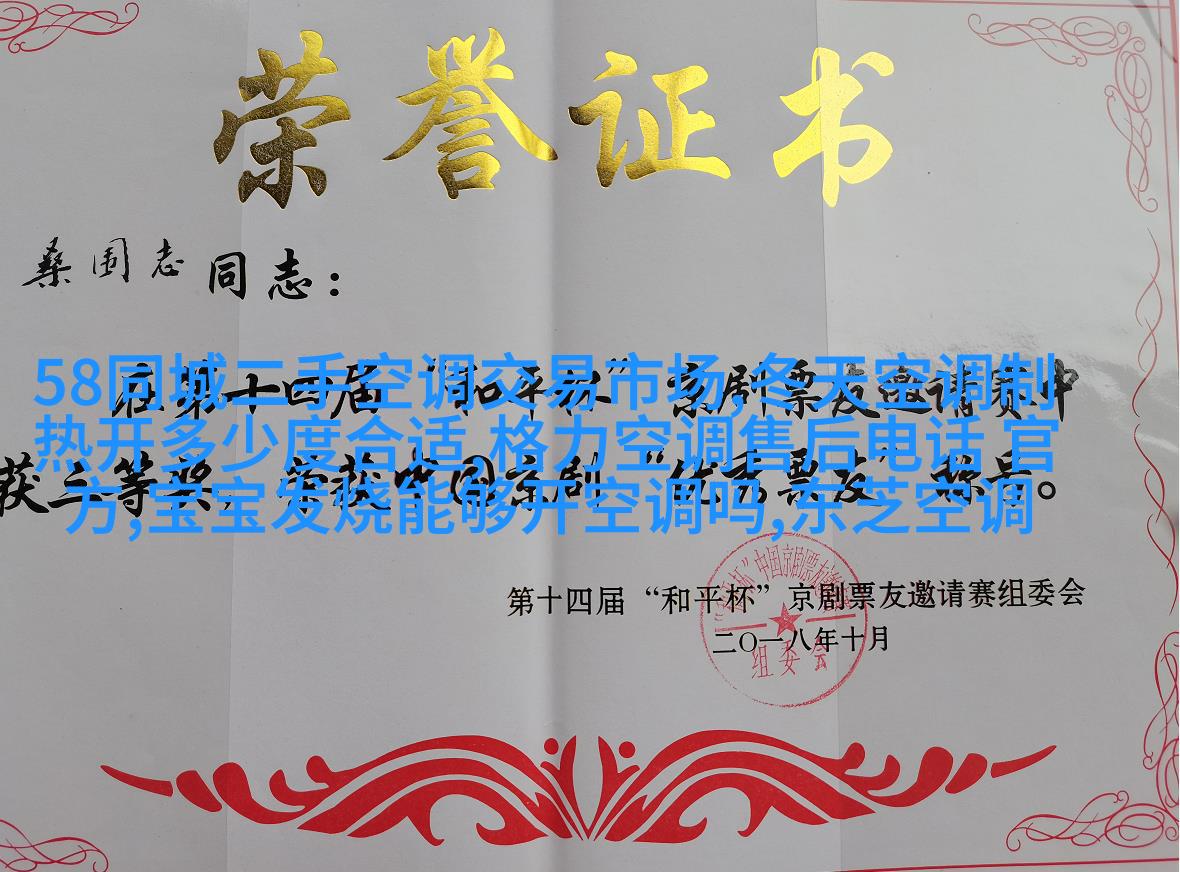 荣誉证书
桑围志同志：
在第十四届“和平杯”京剧票友邀请赛中
获三等奖，荣获中国京剧“优秀票友”称号。
58同城二手空调交易市场,冬天空调制
热开多少度合适,格力空调售后电话,官
方,宝宝发烧能够开空调吗,东芝空调
第十四届“和平杯”京剧票友邀请赛组委会
二〇一八年十月
组委会